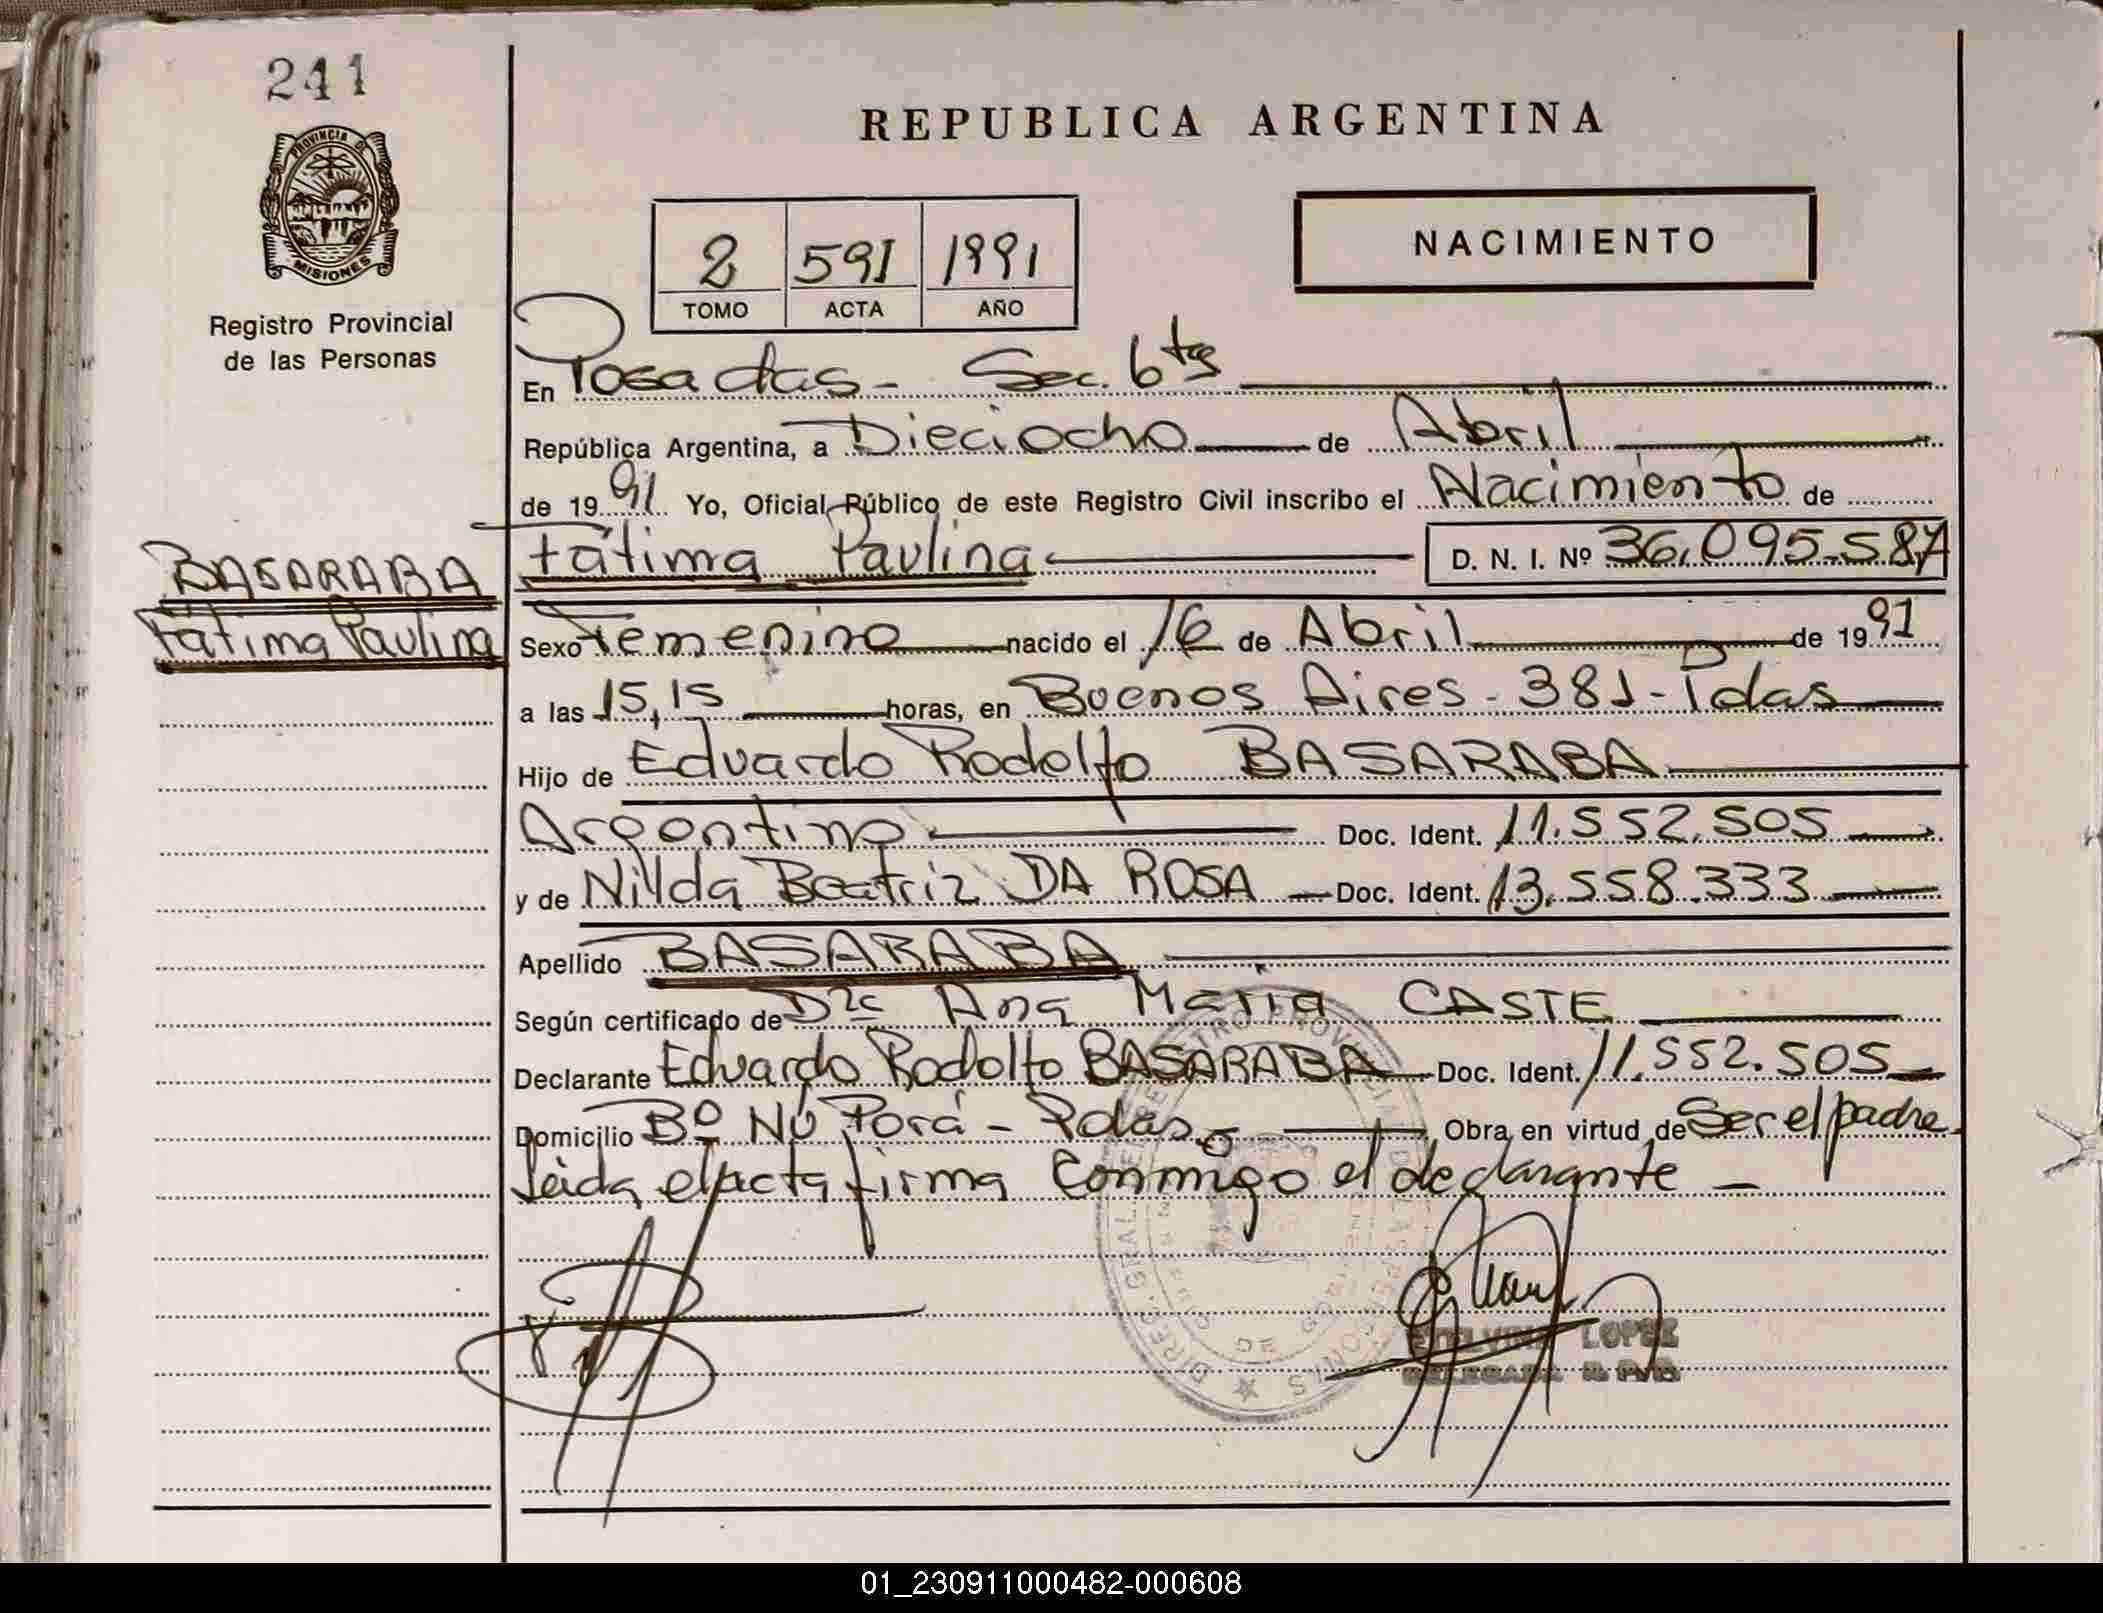 241
REPUBLICA ARGENTINA
PROVINCIA DE
MISIONES
Registro Provincial
de las Personas
2 591 1991
TOMO ACTA AÑO
NACIMIENTO
En Posadas - Sec. 6ta
República Argentina, a Dieciocho de Abril
de 1991 Yo, Oficial Público de este Registro Civil inscribo el Nacimiento de
Fátima Paulina D. N. I. Nº 36.095.587
BASARABA
Fátima Paulina
Sexo Femenino nacido el 16 de Abril de 1991
a las 15,15 horas, en Buenos Aires - 381 - Pdas
Hijo de Eduardo Rodolfo BASARABA
Argentino Doc. Ident. 11.552.505
y de Nilda Beatriz DA ROSA Doc. Ident. 13.558.333
Apellido BASARABA
Según certificado de Dra Ana María CASTE
Declarante Eduardo Rodolfo BASARABA Doc. Ident. 11.552.505
Domicilio Bº Ñú Porá - Pdas. Obra en virtud de Ser el padre.
Leida el acta firma Conmigo el declarante -
LOPEZ
01_230911000482-000608